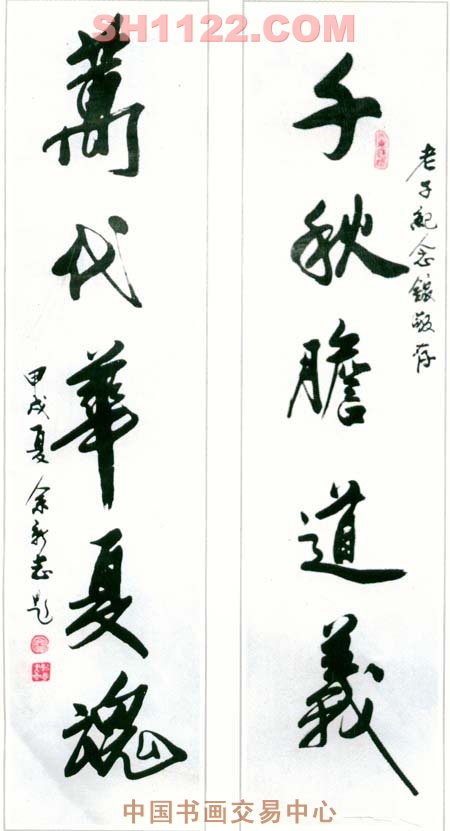 SH1122.COM
老子紀念館敬存
千秋膽道義
萬代華夏魂
甲戌夏 余新志题
中国书画交易中心